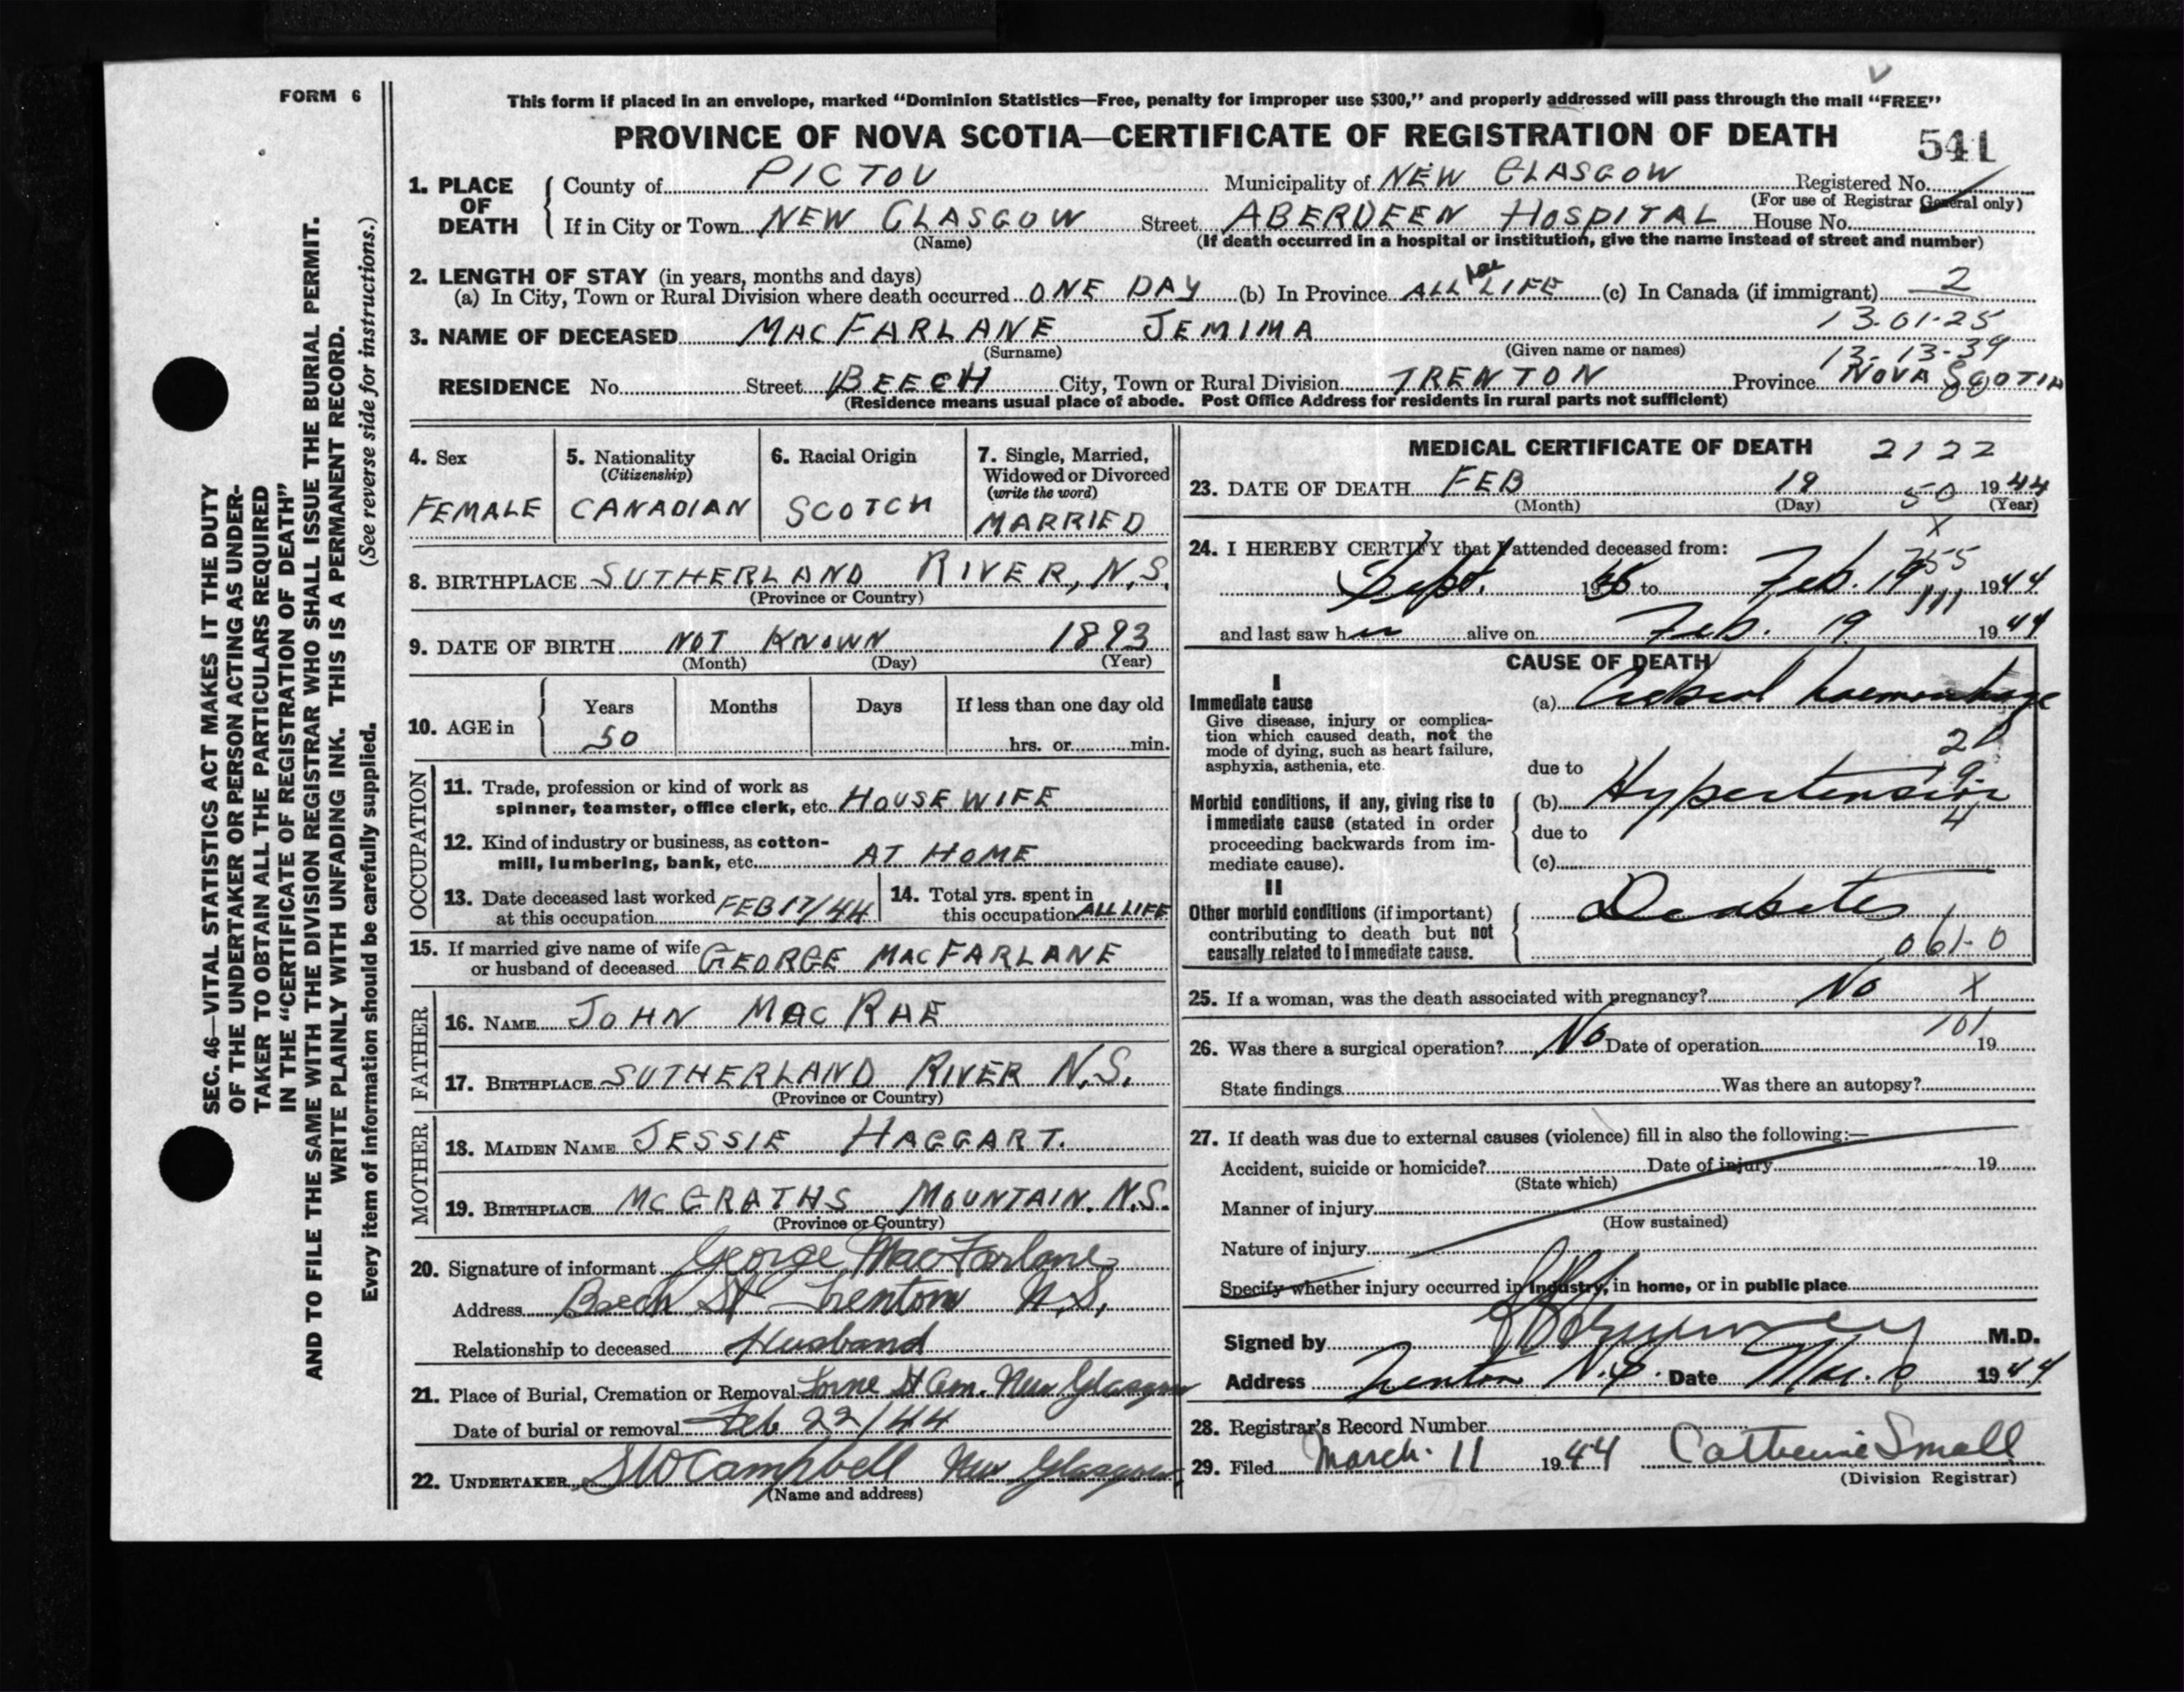 FORM 6
This form if placed in an envelope, marked “Dominion Statistics—Free, penalty for improper use $300,” and properly addressed will pass through the mail “FREE”
PROVINCE OF NOVA SCOTIA—CERTIFICATE OF REGISTRATION OF DEATH 541
1. PLACE OF DEATH
County of PICTOU Municipality of NEW GLASGOW Registered No.
(For use of Registrar General only)
If in City or Town NEW GLASGOW Street ABERDEEN HOSPITAL House No.
(Name) (If death occurred in a hospital or institution, give the name instead of street and number)
2. LENGTH OF STAY (in years, months and days)
(a) In City, Town or Rural Division where death occurred ONE DAY (b) In Province ALL LIFE (c) In Canada (if immigrant) 2
13.01.25
3. NAME OF DECEASED MACFARLANE JEMIMA
(Surname) (Given name or names)
13-13-39
RESIDENCE No. Street BEECH City, Town or Rural Division TRENTON Province NOVA SCOTIA
(Residence means usual place of abode. Post Office Address for residents in rural parts not sufficient)
SEC. 46—VITAL STATISTICS ACT MAKES IT THE DUTY
OF THE UNDERTAKER OR PERSON ACTING AS UNDER-
TAKER TO OBTAIN ALL THE PARTICULARS REQUIRED
IN THE “CERTIFICATE OF REGISTRATION OF DEATH”
AND TO FILE THE SAME WITH THE DIVISION REGISTRAR WHO SHALL ISSUE THE BURIAL PERMIT.
WRITE PLAINLY WITH UNFADING INK. THIS IS A PERMANENT RECORD.
Every item of information should be carefully supplied. (See reverse side for instructions.)
4. Sex
FEMALE
5. Nationality
(Citizenship)
CANADIAN
6. Racial Origin
SCOTCH
7. Single, Married,
Widowed or Divorced
(write the word)
MARRIED
8. BIRTHPLACE SUTHERLAND RIVER, N.S.
(Province or Country)
9. DATE OF BIRTH NOT KNOWN 1893
(Month) (Day) (Year)
10. AGE in
Years Months Days If less than one day old
50 hrs. or min.
OCCUPATION
11. Trade, profession or kind of work as
spinner, teamster, office clerk, etc. HOUSEWIFE
12. Kind of industry or business, as cotton-
mill, lumbering, bank, etc. AT HOME
13. Date deceased last worked
at this occupation FEB 17/44
14. Total yrs. spent in
this occupation ALL LIFE
15. If married give name of wife
or husband of deceased GEORGE MACFARLANE
FATHER
16. NAME JOHN MACRAE
17. BIRTHPLACE SUTHERLAND RIVER N.S.
(Province or Country)
MOTHER
18. MAIDEN NAME JESSIE HAGGART.
19. BIRTHPLACE MCGRATHS MOUNTAIN. N.S.
(Province or Country)
20. Signature of informant George MacFarlane
Address Beech St Trenton N.S.
Relationship to deceased Husband
21. Place of Burial, Cremation or Removal Lorne St Cem. New Glasgow
Date of burial or removal Feb 22/44
22. UNDERTAKER SW Campbell New Glasgow
(Name and address)
MEDICAL CERTIFICATE OF DEATH 2122
23. DATE OF DEATH FEB 19 1944
(Month) (Day) (Year)
50
X
24. I HEREBY CERTIFY that I attended deceased from:
Sept. to Feb. 19 1944
and last saw her alive on Feb. 19 1944
CAUSE OF DEATH
I
Immediate cause
Give disease, injury or complica-
tion which caused death, not the
mode of dying, such as heart failure,
asphyxia, asthenia, etc.
(a) Cerebral haemorrhage
due to
Morbid conditions, if any, giving rise to
immediate cause (stated in order
proceeding backwards from im-
mediate cause).
(b) Hypertension
due to
(c)
II
Other morbid conditions (if important)
contributing to death but not
causally related to immediate cause.
Diabetes
061-0
25. If a woman, was the death associated with pregnancy? No X
101
26. Was there a surgical operation? No Date of operation 19
State findings Was there an autopsy?
27. If death was due to external causes (violence) fill in also the following:—
Accident, suicide or homicide? Date of injury 19
(State which)
Manner of injury
(How sustained)
Nature of injury
Specify whether injury occurred in industry, in home, or in public place
Signed by M.D.
Address Trenton N.S. Date Mar. 1944
28. Registrar's Record Number
29. Filed March 11 1944 Catherine Small
(Division Registrar)